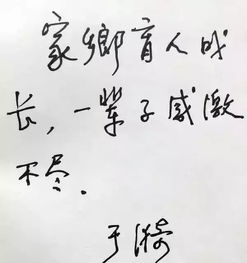 家鄉育人成
长，一辈子感激
不尽．
于漪